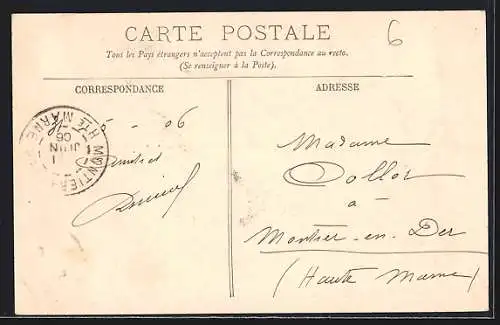 CARTE POSTALE
6
Tous les Pays étrangers n'acceptent pas la Correspondance au recto.
(Se renseigner à la Poste).
CORRESPONDANCE
ADRESSE
06
Amitiés
HTE MARNE
JUIN
06
Madame
Dollot
à
Montier-en-Der
(Haute Marne)